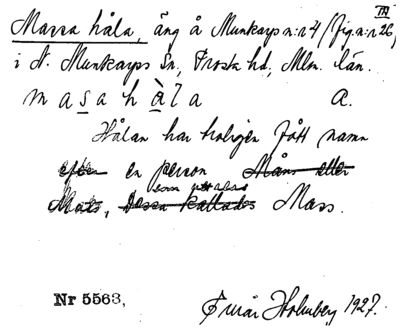 III
Massa håla, äng å Munkarps n:r 4 (fig. n:r 26)
i N. Munkarps sn, Frosta hd, Mlm. län.
m a s a h à l a A.
Hålan har troligen fått namn
efter en person Måns eller
som
Mats, dessa kallades Mass.
Nr 5563,
Holmberg 1927.